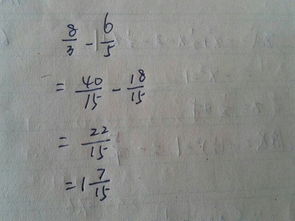 8/3 - 6/5
= 40/15 - 18/15
= 22/15
= 1 7/15